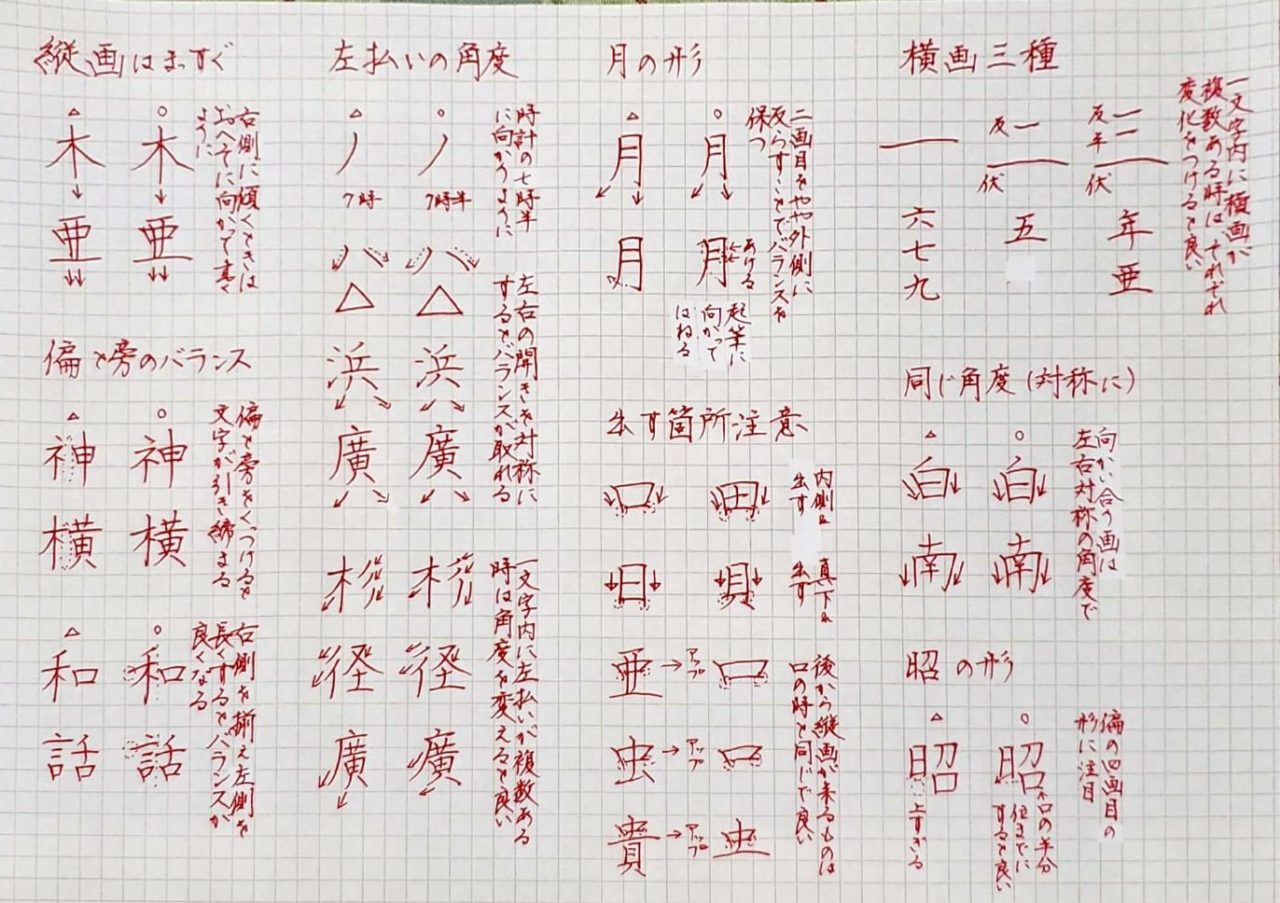 縦画はまっすぐ
△ ○
木 木
亜 亜
右側に傾くときは
おへそに向かって書く
ように
偏と旁のバランス
△ ○
神 神
横 横
偏と旁をくっつけると
文字が引き締まる
△ ○
和 和
話 話
右側を揃え左側を
長くするとバランスが
良くなる
左払いの角度
△ ○
ノ ノ
7時 7時半
時計の七時半
に向かうように
ハ ハ
△ △
浜 浜
廣 廣
左右の開きを対称に
するとバランスが取れる
径 径
廣 廣
一文字内に左払いが複数ある
時は角度を変えると良い
月の形
△ ○
月 月
月 月
二画目をやや外側に
反らすことでバランスを
保つ
あける
起筆に
向かって
はねる
出す箇所注意
口 田
内側は
出す
日 貝
真下は
出す
亜 → アップ
虫 → アップ
貴 → アップ
後から縦画が来るものは
口の時と同じで良い
横画三種
一文字内に横画が
複数ある時は、それぞれ
変化をつけると良い
反 伏
反 平 伏
六 七 九
五
年 亜
同じ角度(対称に)
△ ○
白 白
南 南
向かい合う画は
左右対称の角度で
昭の形
△ ○
昭 昭
上すぎる
口の半分
位までに
すると良い
偏の四画目の
形に注目